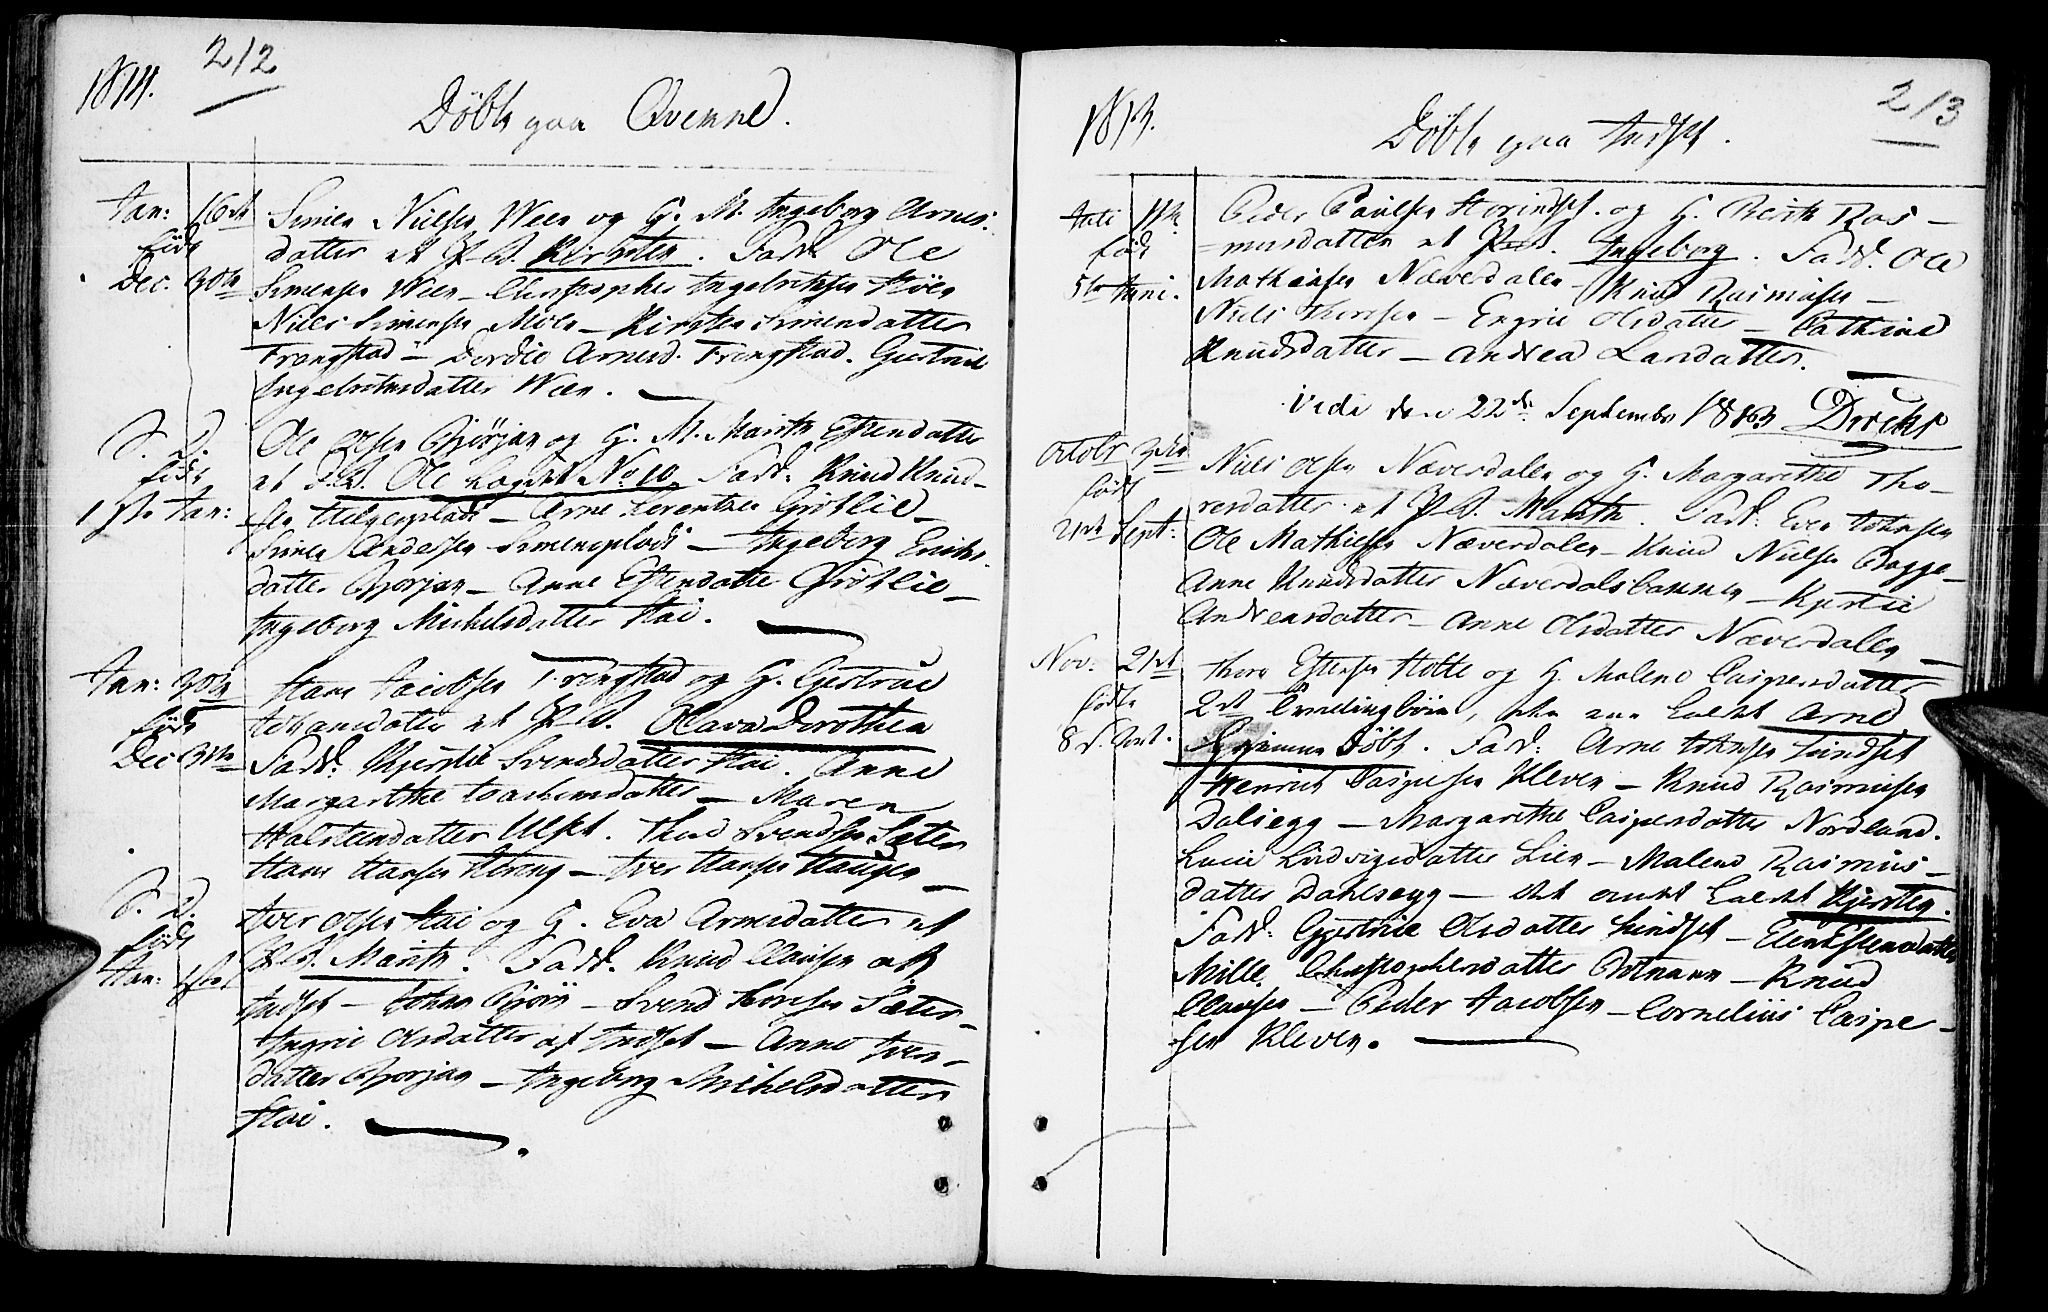 1814.
212
Döbte paa Qvenne.
Jan: 16de Simen NielsenWeen og H. M. Ingeborg Arnes:
födt datter et P. B. Kirsten. Fadd. Ole
Dec. 30te Simensen Ween - Christopher Ingebrittsen Höen
Niels Simensen Moen - Kirsten Simensdatter
Frengstad - Dordie Arnesd. Frengstad. Giertrud
Ingebritsdatter Ween.
S. D. Ole Olsen Bjørjan og H. M. Marith Estensdatter
födt et D. B. Ole Lægdet No 10. Fadd. Knud Knud-
1ste Jan: sen Helgesplads - Arne Lorentsen Grötlie -
Simen Andersen Simensplads - Ingeborg Erichs-
datter Bjørjan - Anne Estensdatter Grötlie -
Ingeborg Michelsdatter Hai.
Jan: 30te Hans Jacobsen Frengstad og H. Giertrue
födt Johansdatter et P. B. Olava Dorothea
Dec 31te Fadd: Kjerstie Svendsdatter Hai. Anne
Margarethe Joachimsdatter - Maren
Halsteensdatter Ulset. Thord Svendsen Sæter
Hans Hansen - Iver Hansen Haugen -
S. D. Iver Olsen Hai og H. Eva Arnesdatter et
födt P. B. Marith. Fadd. Knud Clausen af
Jan: 1ste Indset - Johan Bjørn - Svend Thoresen Sæter -
Ingrie Olsdatter af Indset - Anne Ivers-
datter Bjorjan - Ingeborg Michelsdatter
Hai.
1813.
213
Döbte paa Indset.
Juli 11te Peder Paulsen Storindset og H. Berith Ras-
född =musdatter et P. B. Ingeborg. Fadd. Ole
5te Juni. Mathiasen Næverdalen - Knud Rasmusen -
Niels Thoresen - Engrie Olsdatter - Cathrine
Knudsdatter - Andrea Larsdatter.
Vidi den 22de September 1813
Octobr 3die Niels Olsen Næverdalen og H. Margarethe Tho-
födt resdatter et P. B. Marith. Fadd: Even Johnsen
21de Sept: Ole Mathiesen Næverdalen - Knud Nielsen Bagge-
Anne Knudsdatter Næverdalsbakken - Kjerstie
Andreasdatter - Anne Olsdatter Næverdalen -
Nov: 21de Thore Estensen Holte og H. Malene Caspersdatter
födte 2de Tvillingbörn, det ene kaldet Arne
8d. Hjemme Döbt. Fadd: Arne Johnsen Lindset
Henrich Caspersen Kleven - Knud Rasmusen
Dalsegg - Margarethe Caspersdatter Nordland.
Lucie Ludvigsdatter Lien - Malene Rasmus-
datter Dahlsegg - det andet kaldet Kjersten.
Fadd: Gjertrue Olsdatter Lindset - Elen Estensdatter
Mille Christophersdatter - Knud
Clausen - Peder Jacobsen - Cornelius Casper-
sen Kleven.